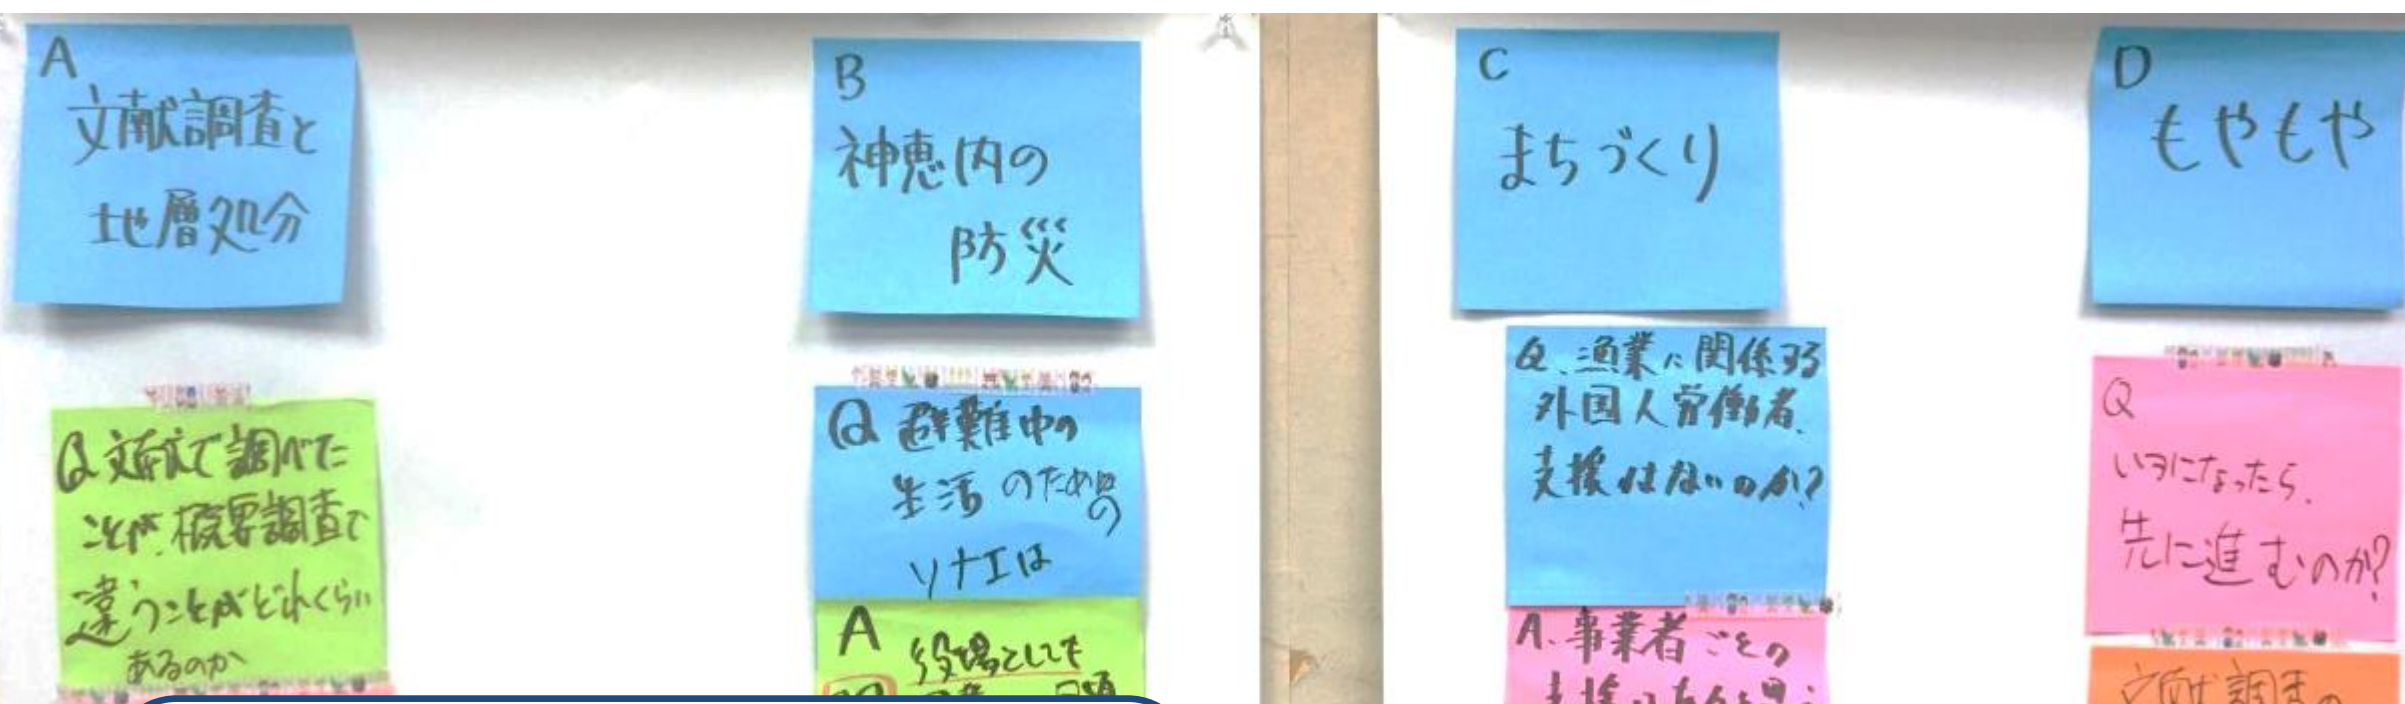 A
文献調査と
地層処分
Q 文献で調べた
ことが、概要調査で
違うことがどれくらい
あるのか
B
神恵内の
防災
Q 避難中の
生活のための
ソナエは
A 役場としても
C
まちづくり
Q. 漁業に関係する
外国人労働者、
支援はないのか?
A. 事業者ごとの
D
もやもや
Q
いつになったら、
先に進むのか?
文献調査の